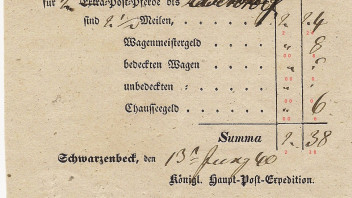 für 2 Extra-Post-Pferde bis
sind 2 1/2 Meilen, 2 24
Wagenmeistergeld " 8
bedeckten Wagen "
unbedeckten "
Chausseegeld " 6
Summa 2 38
Schwarzenbeck, den 13t Juny 40
Königl. Haupt-Post-Expedition.